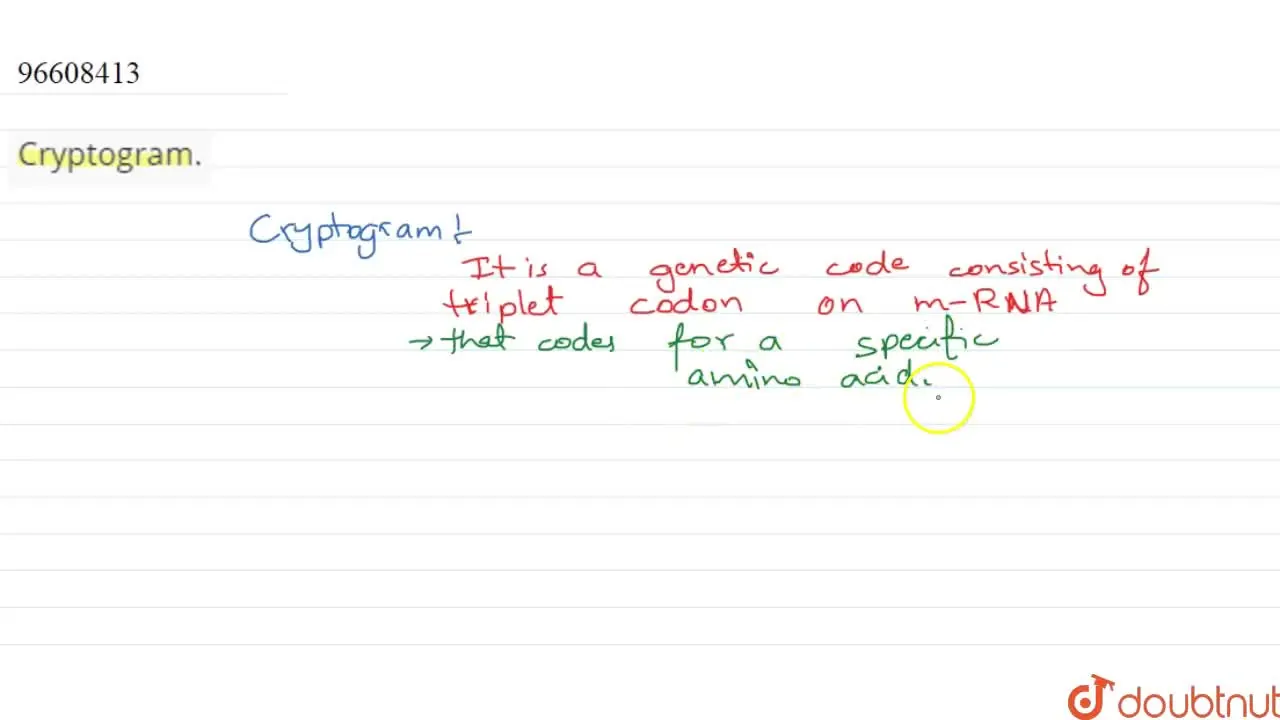 96608413
Cryptogram.
Cryptogram :-
It is a genetic code consisting of
triplet codon on m-RNA
→ that codes for a specific
amino acid.
doubtnut